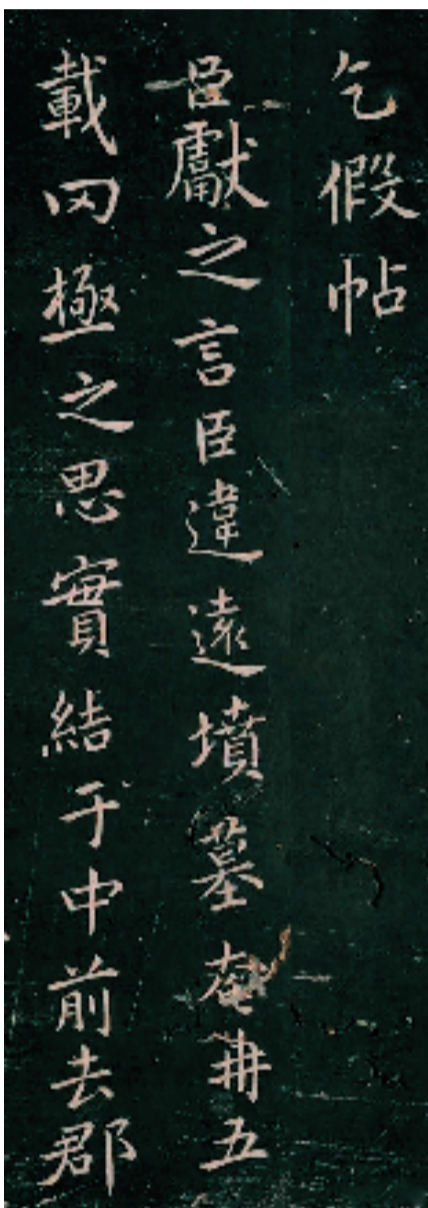 乞假帖
臣獻之言臣違遠墳墓奄冉五
載罔極之思實結于中前去郡